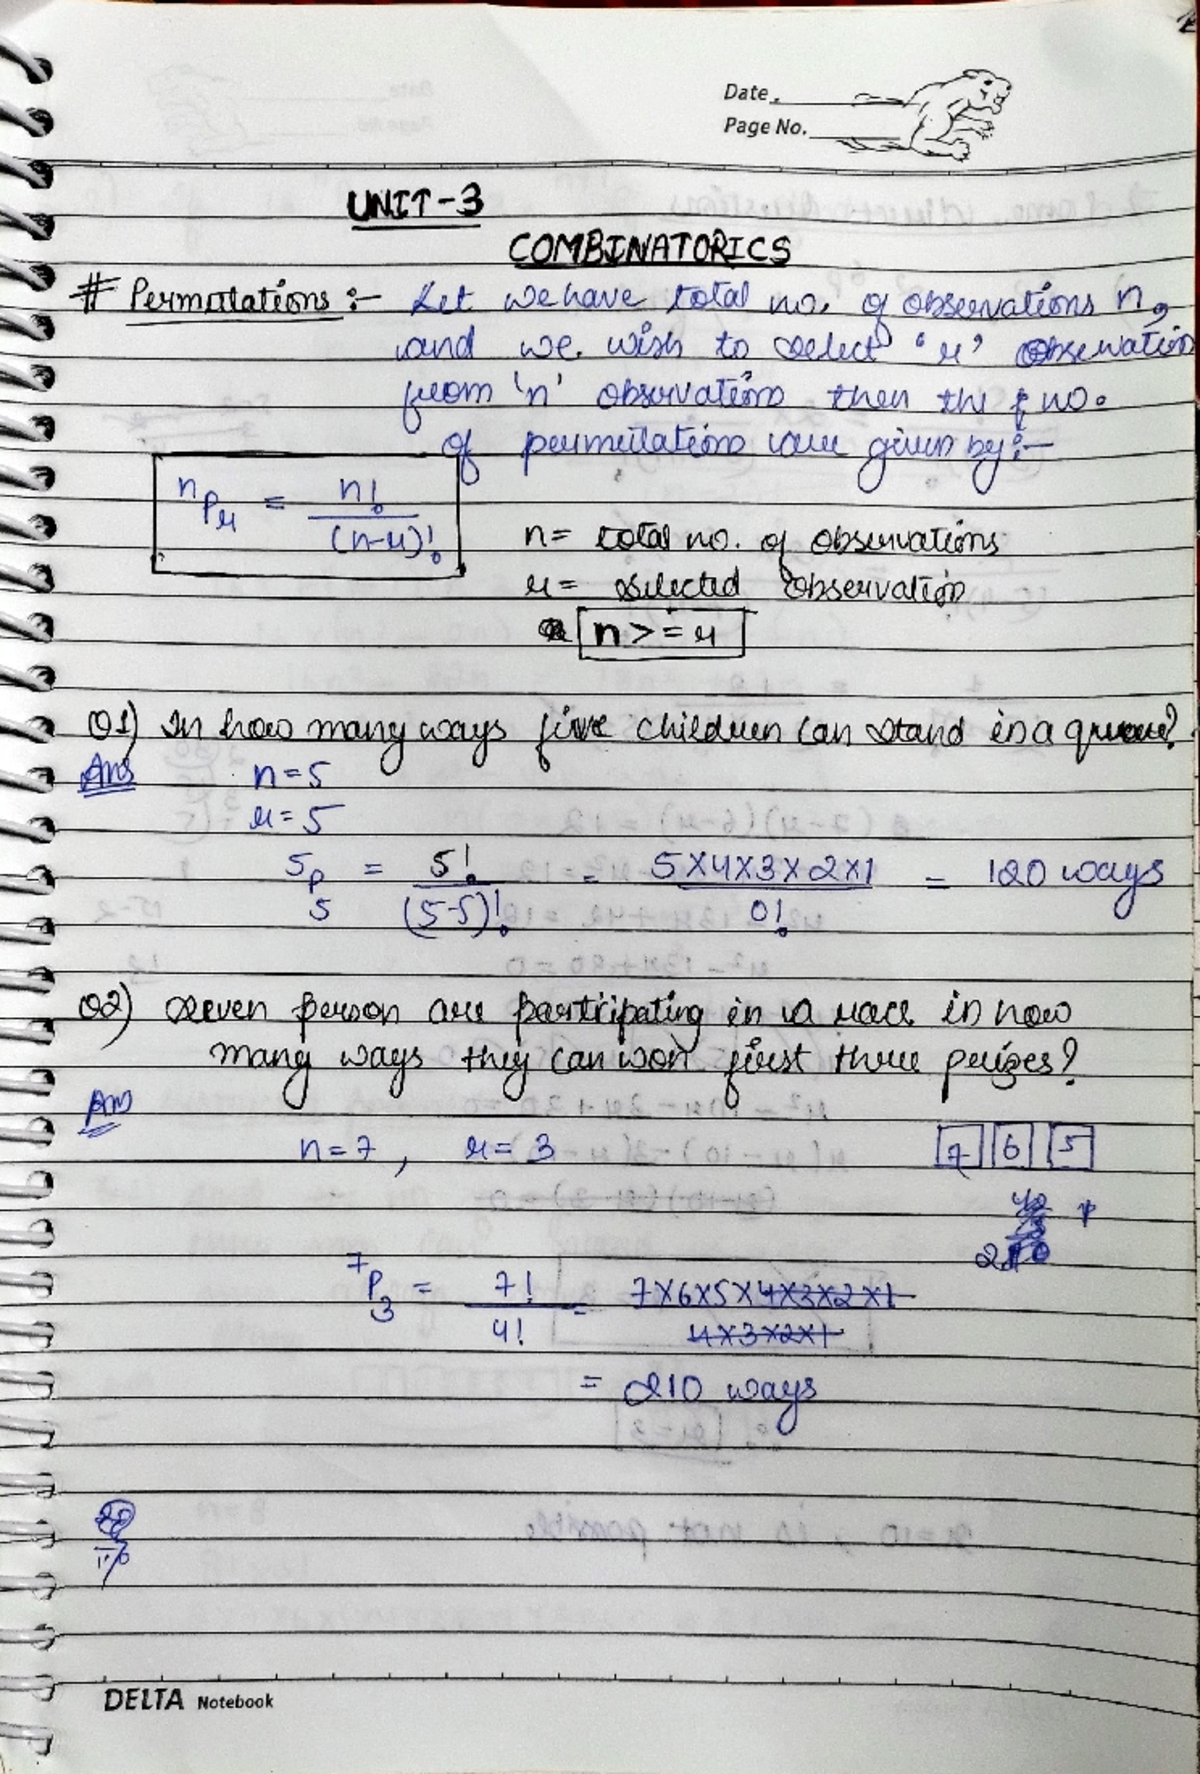 Date
Page No.
UNIT-3
COMBINATORICS
# Permutations :- Let we have total no. of observations n,
and we wish to select 'r' observation
from 'n' observations then the no.
of permutations are given by:-
nPr = n! / (n-r)!
n = total no. of observations
r = selected observation
n >= r
Q1) In how many ways five children can stand in a queue?
Ans n=5
r=5
5P5 = 5! / (5-5)! = 5X4X3X2X1 / 0! = 120 ways
Q2) Seven person are participating in a race in how
many ways they can won first three prizes?
Ans
n=7, r=3 7 6 5
42
7P3 = 7! / 4! = 7X6X5X4X3X2X1 / 4X3X2X1
= 210 ways
DELTA Notebook